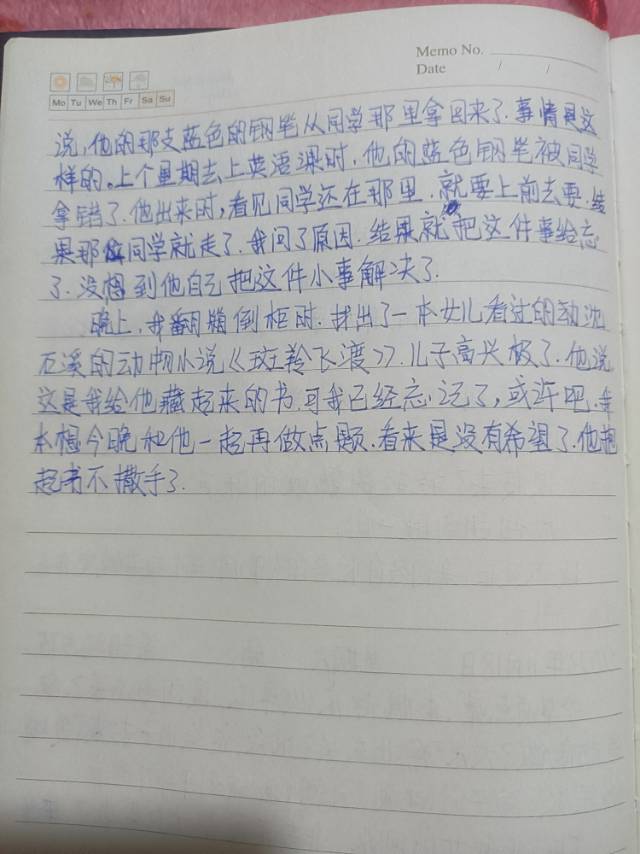 Memo No.
Date / /
Mo Tu We Th Fr Sa Su
说，他的那支蓝色的钢笔从同学那里拿回来了．事情是这
样的．上个星期去上英语课时．他的蓝色钢笔被同学
拿错了．他出来时，看见同学还在那里．就要上前去要．结
果那位同学就走了．我问了原因．结果就把这件事给忘
了．没想到他自己把这件小事解决了．
晚上，我翻箱倒柜时．找出了一本女儿看过的
石溪的动物小说《斑羚飞渡》．儿子高兴极了．他说
这是我给他藏起来的书．可我已经忘记了，或许吧．我
本想今晚和他一起再做点题．看来是没有希望了．他抱
起书不撒手了．